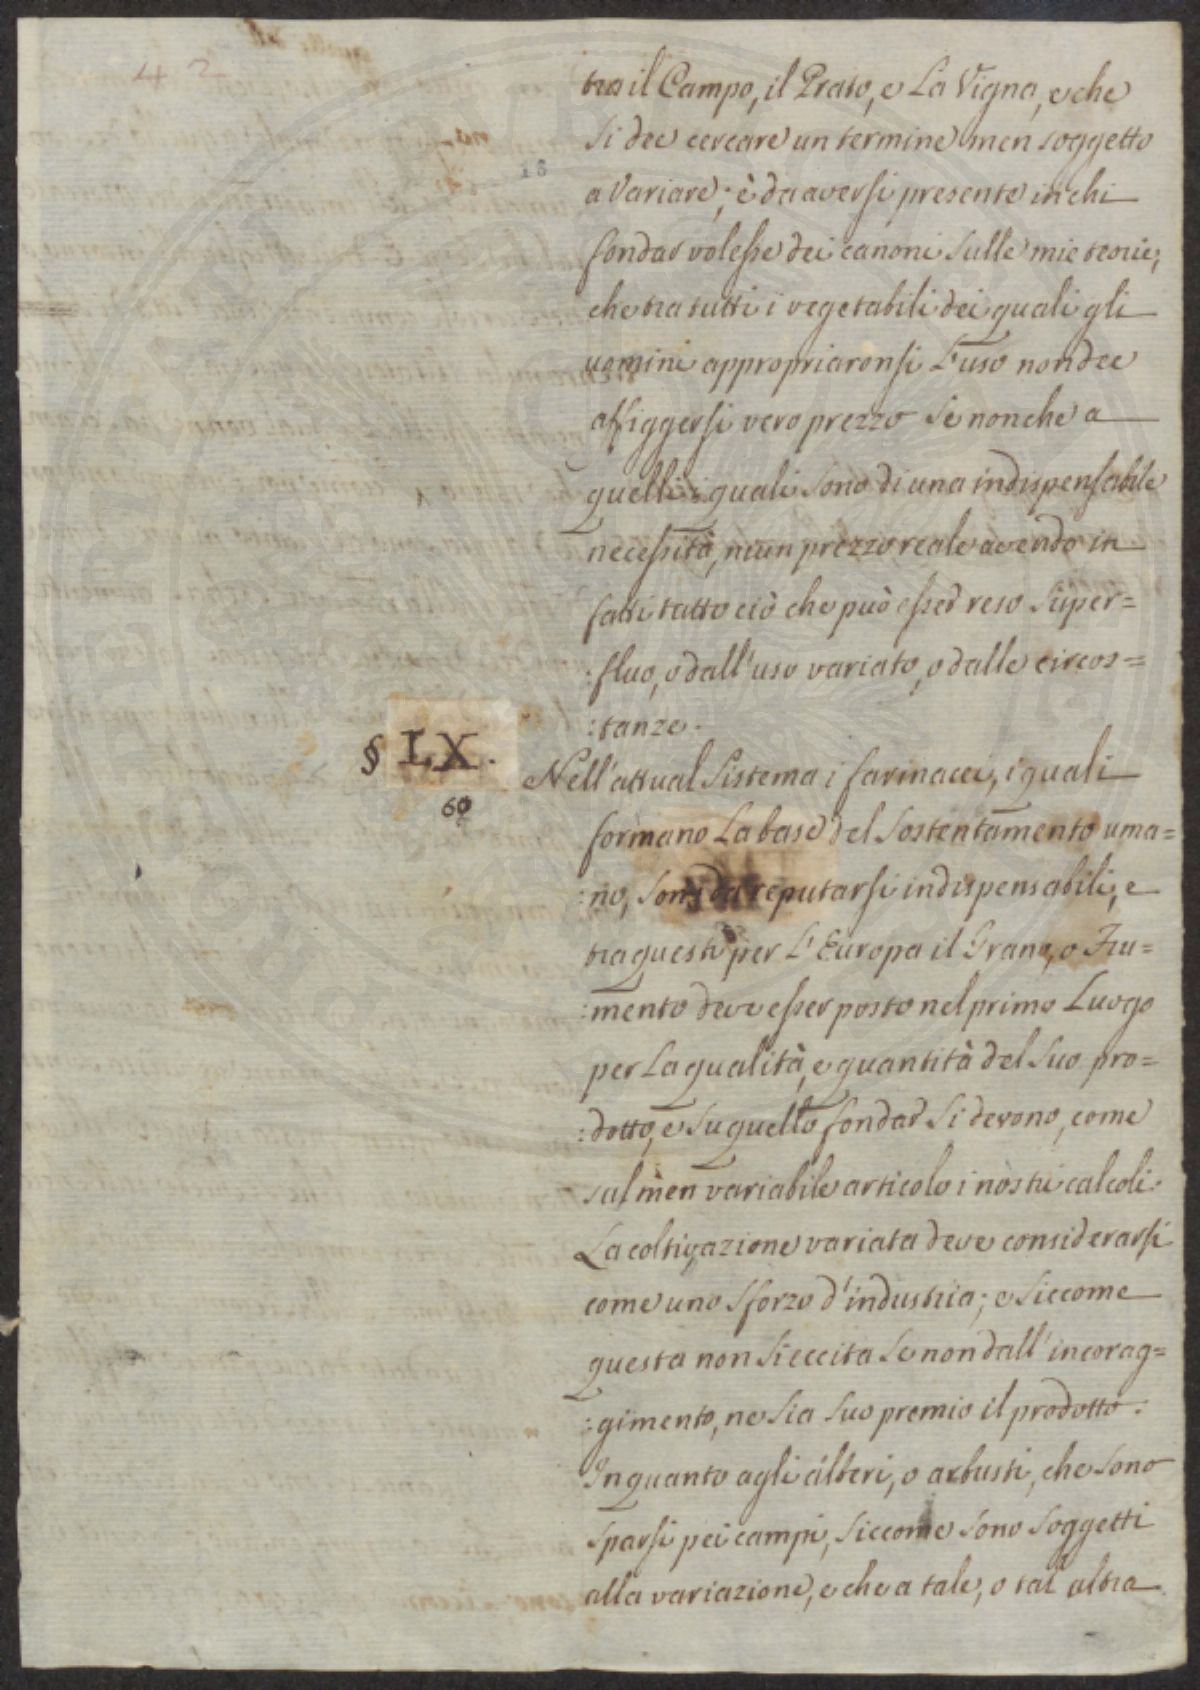 42
18
tra il Campo, il Prato, e La Vigna, e che
si dee cercare un termine men soggetto
a Variare; è da aversi presente in chi
fondar volesse dei canoni sulle mie teorie,
che tra tutti i vegetabili dei quali gli
uomini appropriaronsi L'uso non dee
affiggersi vero prezzo se non che a
quelli i quali sono di una indispensabile
necessità, niun prezzo reale avendo in
fatti tutto ciò che può esser reso super=
:fluo, o dall'uso variato, o dalle circos=
:tanze.
§ LX.
60
Nell'attual Sistema i farinacei, i quali
formano La base del Sostentamento uma=
:no, sono da reputarsi indispensabili, e
tra questi per L'Europa il Grano, o Fru=
:mento deve esser posto nel primo Luogo
per La qualità, e quantità del suo pro=
:dotto, e su quello fondar si devono, come
sul men variabile articolo i nostri calcoli.
La coltivazione variata deve considerarsi
come uno sforzo d'industria; e siccome
questa non si eccita se non dall'incorag=
:gimento, ne sia suo premio il prodotto.
In quanto agli alberi, o arbusti, che sono
sparsi pei campi, siccome sono soggetti
alla variazione, e che a tale, o tal altra